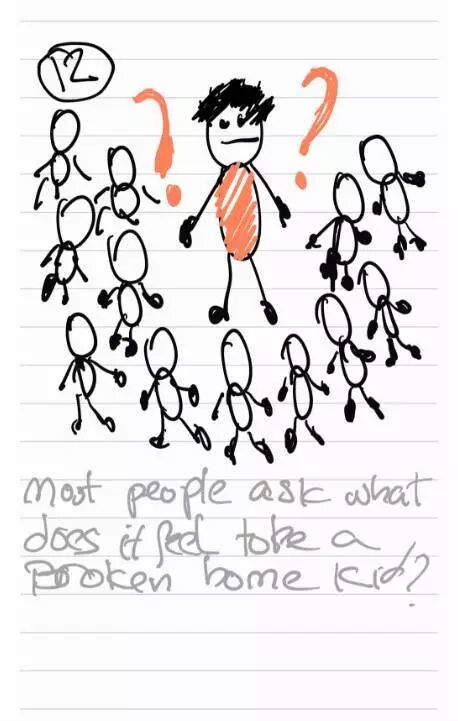 12
? ?
most people ask what
does it feel to be a
Broken home kid?